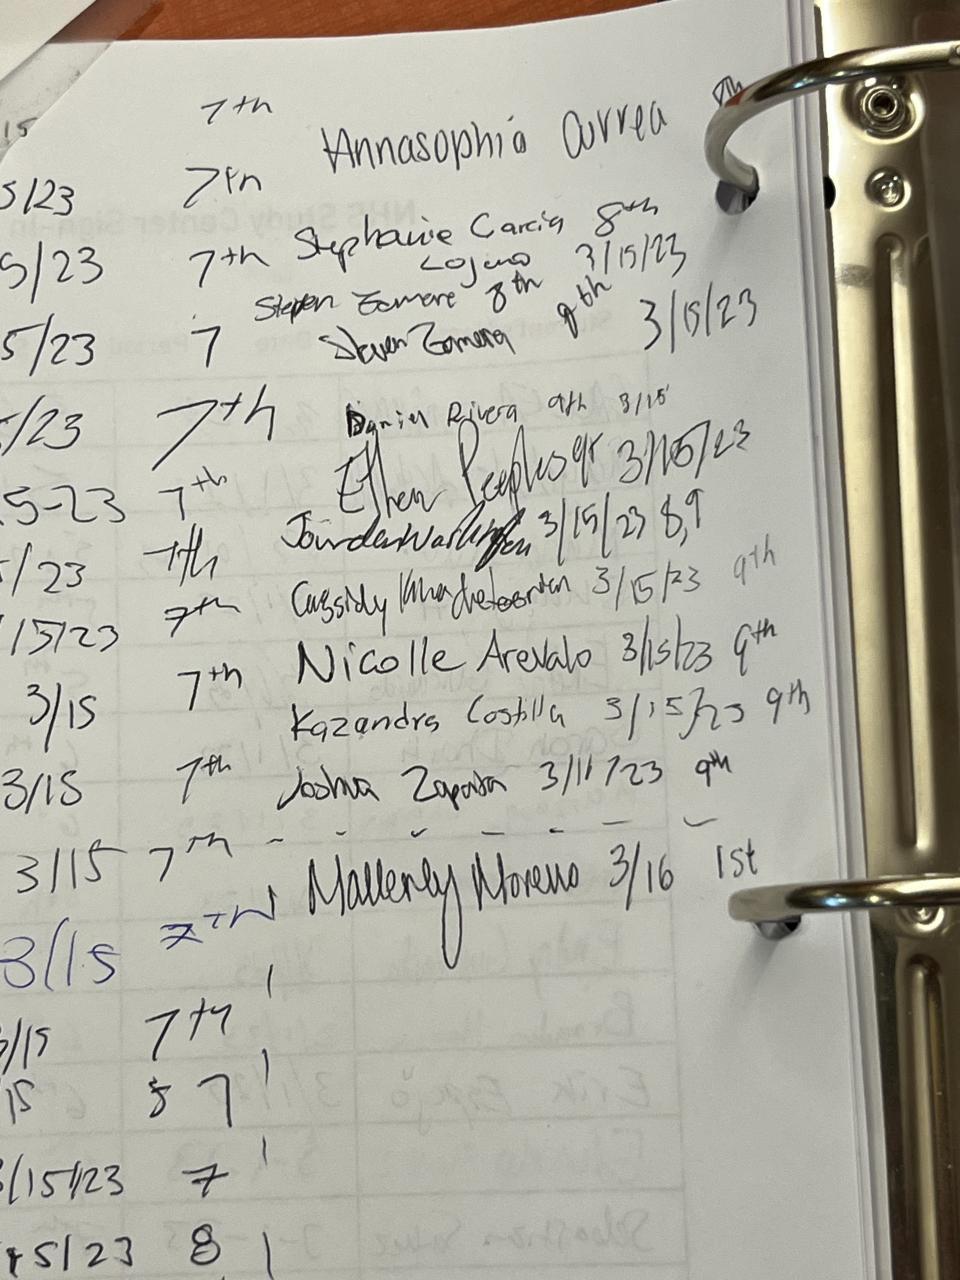 7th
Annasophia Currea 8th
15
5/23 7th
Stephanie Garcia 8th
5/23 7th Lojano 3/15/23
Steven Zamora 8th
5/23 7 Steven Zamora 9th 3/15/23
/23 7th Daniel Rivera 9th 3/15
5-23 7th Ethen Peeples 9th 3/15/23
/23 7th Jourdan 3/15/23 8,9
15/23 7th Cassidy 3/15/23 9th
3/15 7th Nicolle Arevalo 3/15/23 9th
Kazandra Costilla 3/15/23 9th
3/15 7th Joshua Zapata 3/11/23 9th
3/15 7th - - - - - - -
Mallerly Moreno 3/16 1st
3/15 7th
3/15 7th
15 7
3/15/23 7
15/23 8